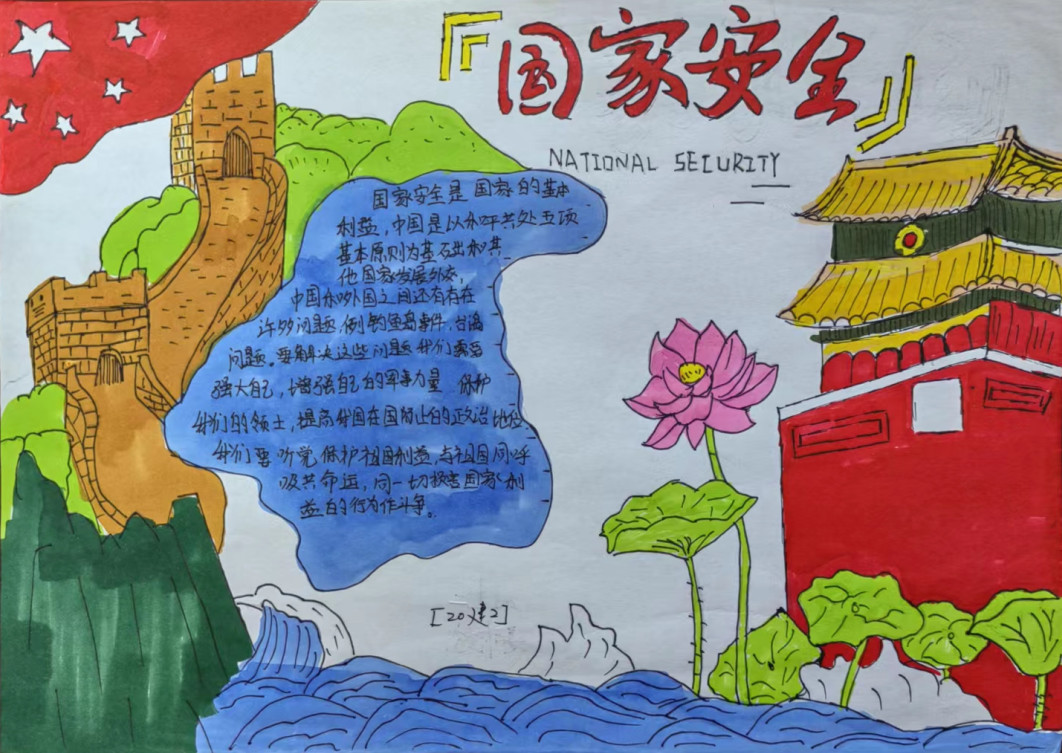 『国家安全』
NATIONAL SECURITY
国家安全是国家的基本
利益,中国是以和平共处五项
基本原则为基石出和其
他国家发展外交,
中国和外国之间还有存在
许多问题,例钓鱼岛事件,台湾
问题。要解决这些问题我们需要
强大自己,增强自己的军事力量 保护
我们的领土,提高我国在国际上的政治地位
我们要听党保护祖国利益,与祖国同呼
吸共命运,同一切损害国家利
益的行为作斗争。
[20建2]